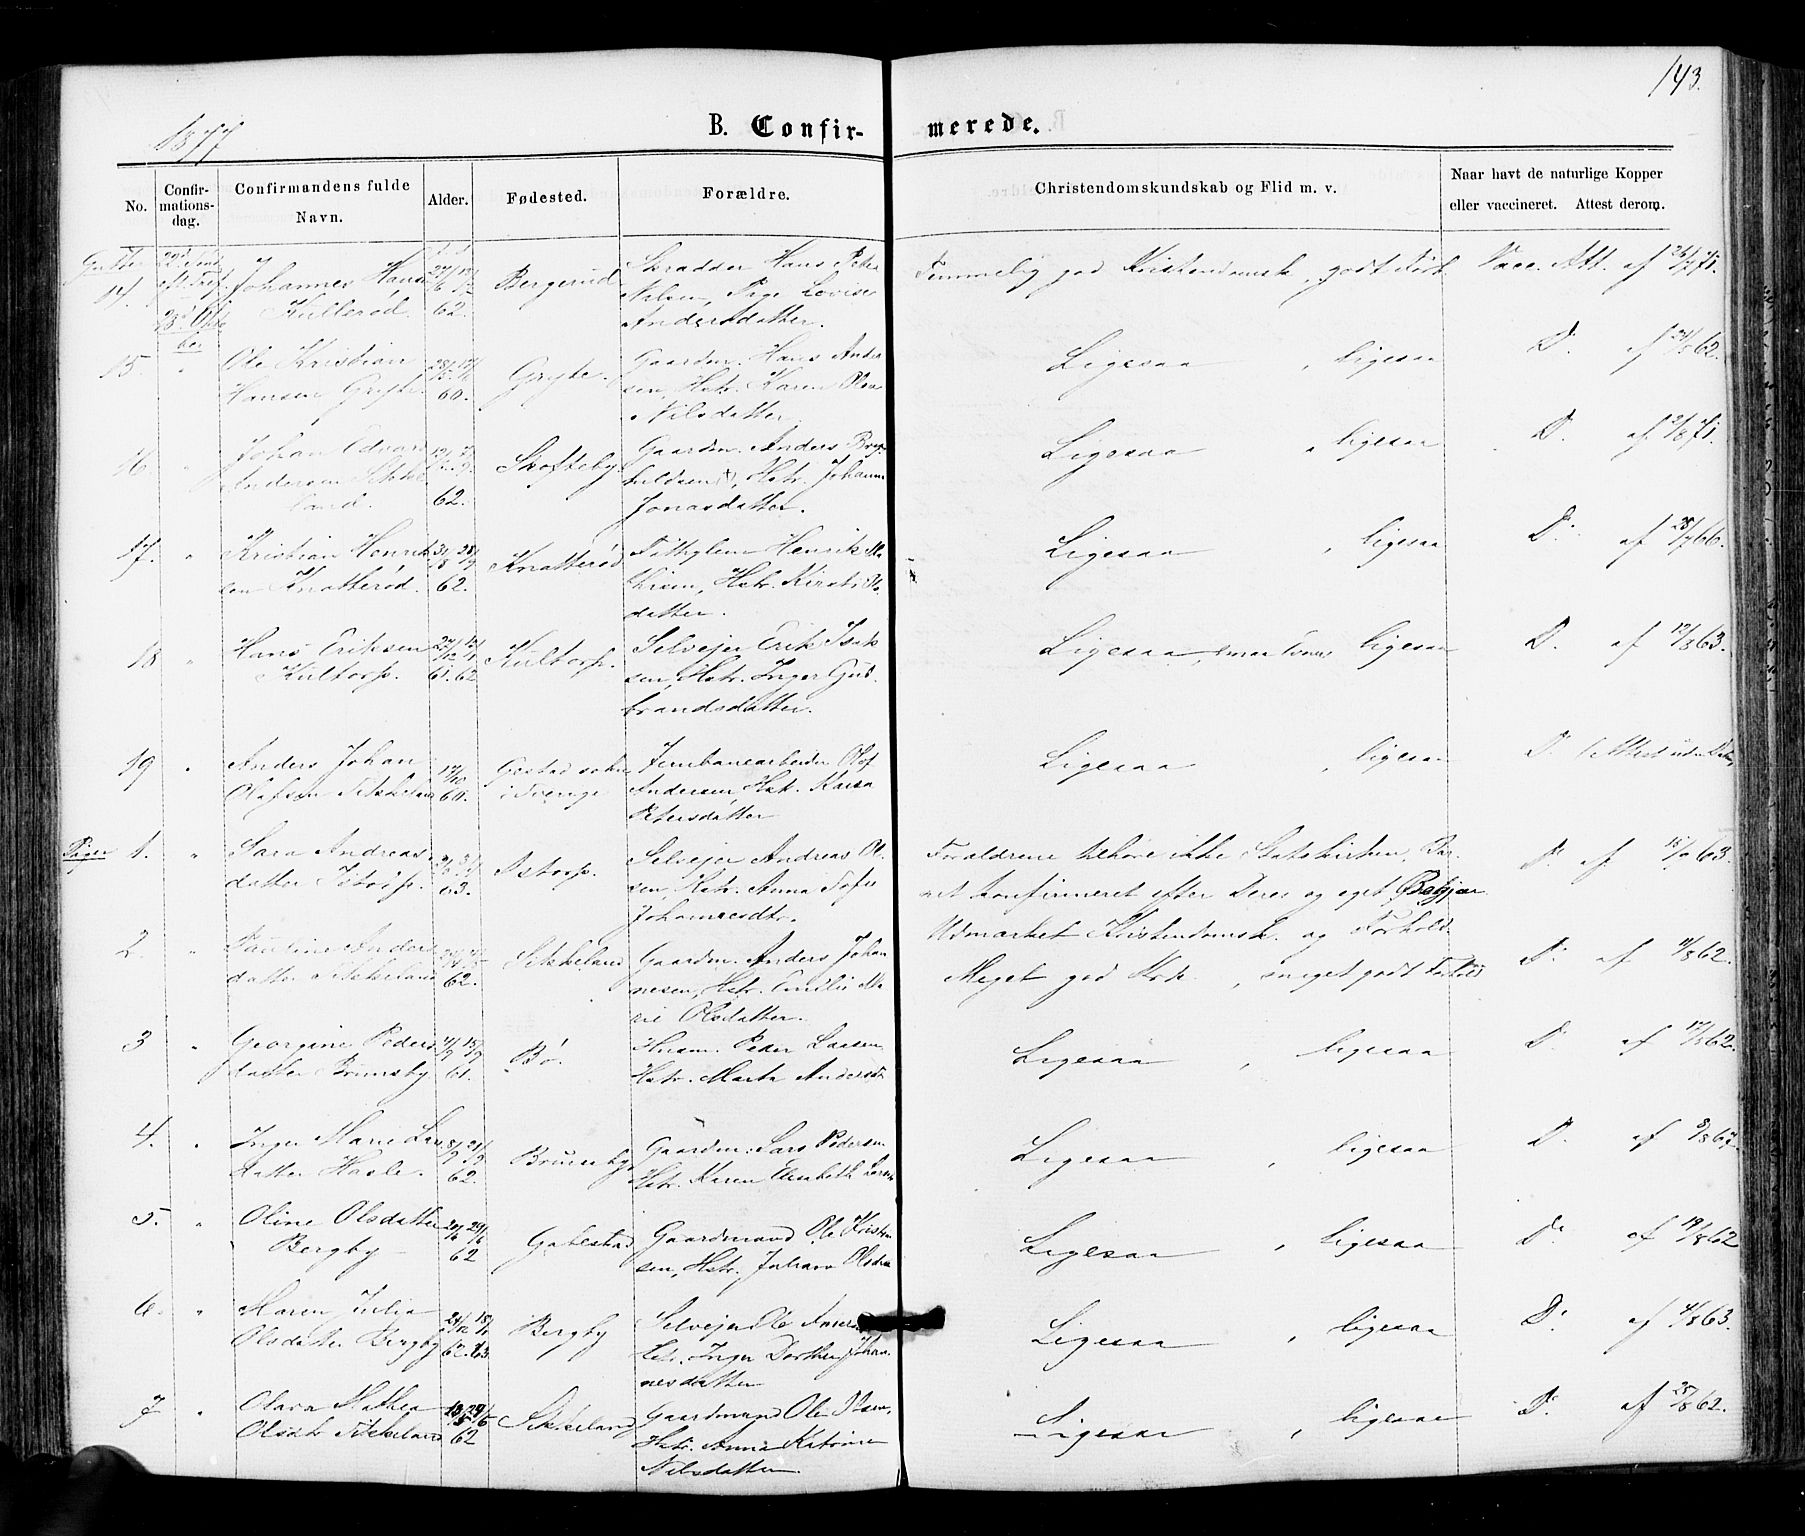 143.
1877
B. Confir- merede.
No.
Confir-
mations-
dag.
Confirmandens fulde
Navn.
Alder.
Fødested.
Forældre.
Christendomskundskab og Flid m. v.
Naar havt de naturlige Kopper
eller vaccineret. Attest derom.
Gutter
14.
Johannes Hans
Kullerød.
62.
Bergerud
Skrædder Hans Peder
Nilsen, Pige Lovise
Andersdatter.
Temmelig god Kristendomsk., godt Forh.
Vacc. Att. af 26/7 71.
15. "
Ole Kristian
Hansen Gryte.
60.
Gryte.
Gaardm. Hans Ander
sen, Hstr. Karen Olea
Nilsdatter.
Ligesaa , ligesaa
D. af 62.
16. "
Johan Edvard
Andersen Sikke
land.
62.
Skofteby
Gaardm. Anders
Hstr. Johanne
Jonasdatter.
Ligesaa , ligesaa
D. af 71.
17. "
Kristian Henrik
sen Knatterød.
62.
Knatterød
Henrik Ma
thisen, Hstr. Kirsti
datter.
Ligesaa , ligesaa
D. af 66.
18 "
Hans Eriksen
Kultorp.
61. 62
Kultorp.
Selvejer Erik Isak
sen, Hstr. Inger Gul
brandsdatter.
Ligesaa, ligesaa
D. af 12/8 63.
19 "
Anders Johan
Olafsen Sikkeland
17/10
60.
Gestad sokn
i Sverige
Jernbanearbeider Olof
Andersen Hst. Kaisa
Petersdatter
Ligesaa , ligesaa
D. (Attest uden Datum)
Piger
1. "
Sara Andreas
datter Istorp.
63.
Istorp.
Selvejer Andreas Ol
sen, Hstr. Anna Sofie
Johannesdtr.
Forældrene tilhøre ikke Statskirken, Bar
net konfirmeret efter Deres og eget Begjær
Udmærket Kristendomsk. og Forhold.
D. af 63.
2. "
Pauline Anders
datter Sikkeland
62.
Sikkeland
Gaardm. Anders Johan
nesen, Hstr. Emilie Ma
rie Olsdatter.
Meget god Krdk. , meget godt Forhold
D. af 11/8 62.
3 "
Georgine Peders
datter Brunsby
61.
Bø.
Husm. Peder Larsen
Hstr. Marta Andersdt
Ligesaa , ligesaa
D. af 17/8 62.
4. "
Inger Marie Lars
datter Hasle.
62.
Brunsby
Gaardm. Lars Pedersen
Hstr. Karen Elisabeth Lars
Ligesaa , ligesaa
D. af
5. "
Oline Olsdatter
Bergby
62
Gatestad
Gaardmand Ole Kristen
sen, Hstr. Olsdtr
Ligesaa , ligesaa
D. af 19/8 62
6. "
Maren Julia
Olsdatter Bergby
62. 63.
Bergby
Selvejer Ole
Hstr. Inger Dorthea Johan
nesdatter
Ligesaa , ligesaa
D. af 4/8 63.
7 "
Olava Mathea
Olsdtr Sikkeland
62
Sikkeland
Gaardmand Ole Olsen,
Hstr. Anna Katrine
Nilsdatter.
Ligesaa , ligesaa
D. af 25/8 62.